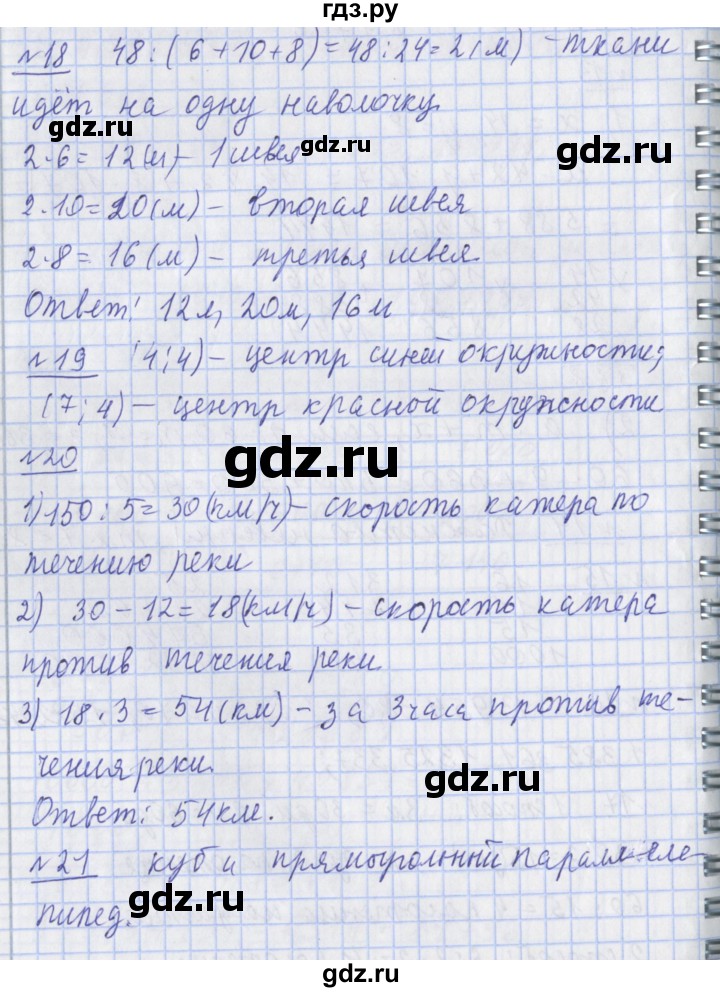 гдз.ру
№18 48:(6+10+8)=48:24=2(м) - ткани
идёт на одну наволочку
gdz.ru gdz.ru
2·6=12(м)- 1 швея
2·10=20(м)- вторая швея
2·8=16(м)- третья швея
Ответ: 12м, 20м, 16м
№19 (4;4)- центр синей окружности;
(7;4)- центр красной окружности
№20
gdz.ru
1) 150:5=30(км/ч)- скорость катера по
течению реки
2) 30-12=18(км/ч)- скорость катера
против течения реки
3) 18·3=54(км)- за 3 часа против те-
чения реки
gdz.ru
Ответ: 54км.
№21 куб и прямоугольный паралле-
пипед.
gdz.ru
gdz.ru